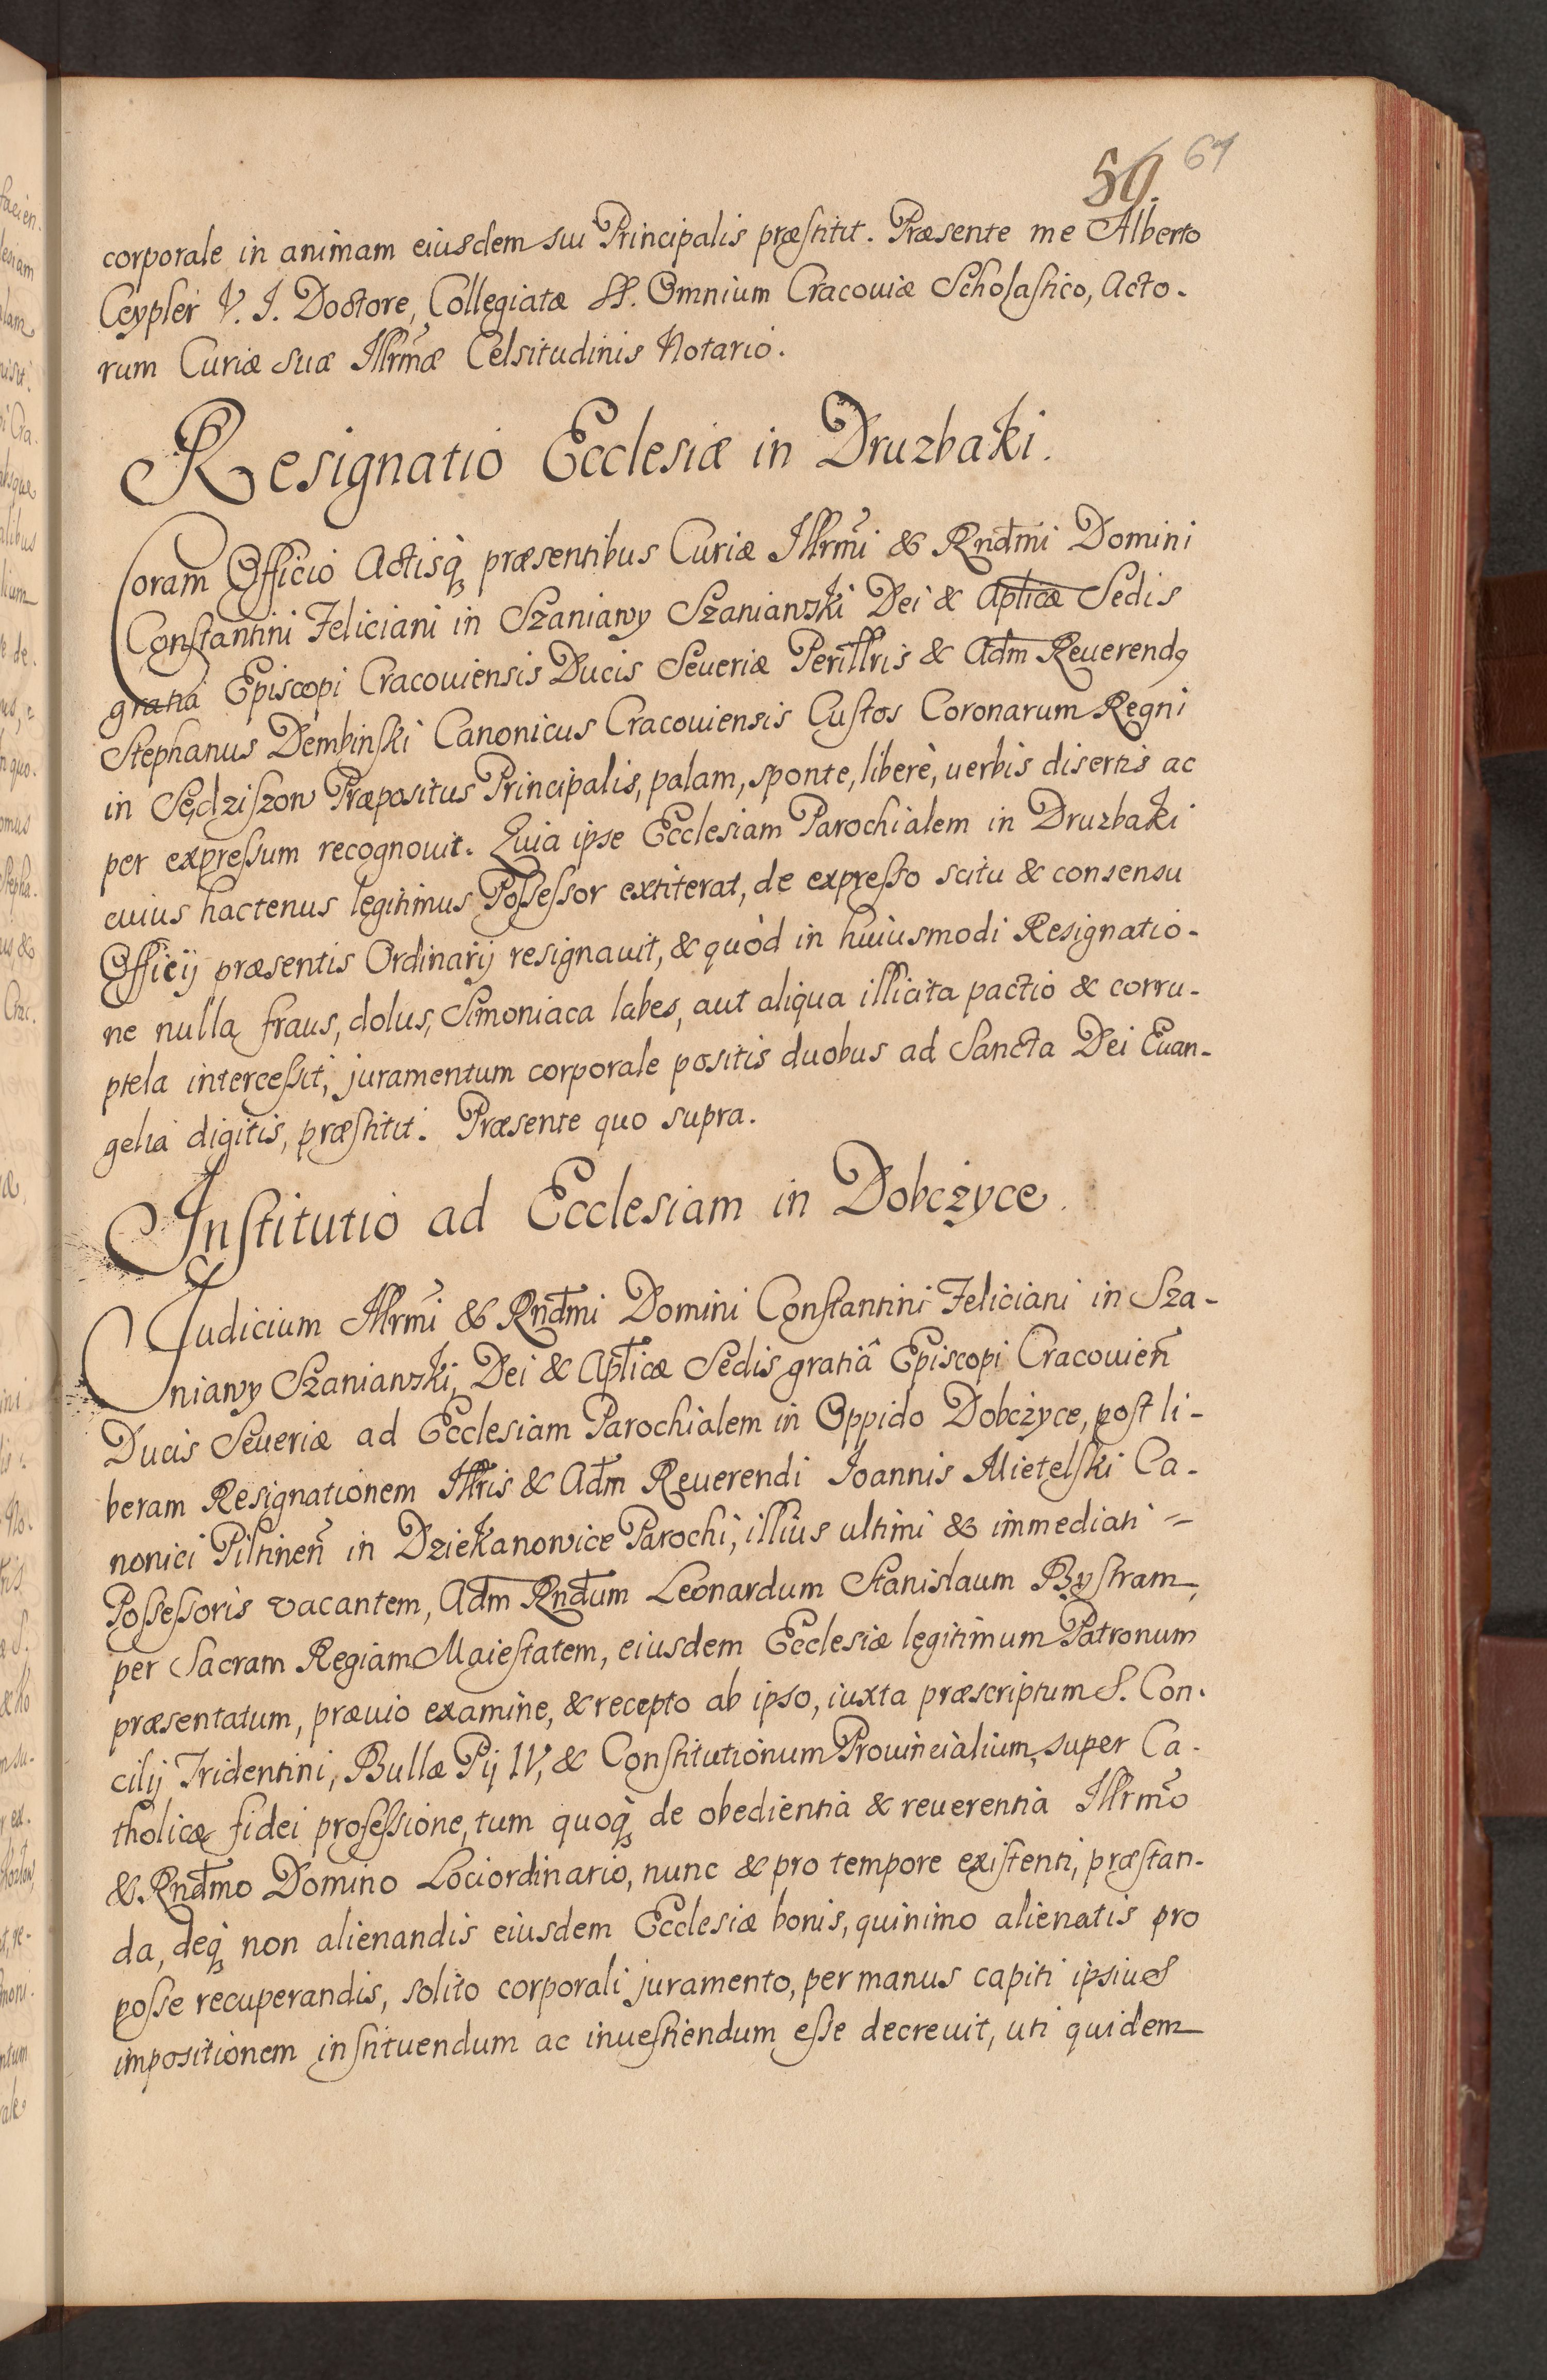 59. 67
corporale in animam eiusdem sui Principalis præstitit. Præsente me Alberto
Ceypler V. J. Doctore, Collegiatæ SS. Omnium Cracouiæ Scholastico, Acto-
rum Curiæ suæ Illrm̃æ Celsitudinis Notario.
Resignatio Ecclesiæ in Druzbaki.
Coram Officio Actisq̀ꝫ præsentibus Curiæ Illrm̃i & Rnd̃mi Domini
Constantini Feliciani in Szaniawy Szaniawski Dei & Aplĩcæ Sedis
gratia Episcopi Cracouiensis Ducis Seueriæ Perillr̃is & Adm̃ Reuerendꝰ
Stephanus Dembinski Canonicus Cracouiensis Custos Coronarum Regni
in Sędziszow Præpositus Principalis, palam, sponte, liberè, uerbis disertis ac
per expressum recognouit. Quia ipse Ecclesiam Parochialem in Druzbaki
cuius hactenus legitimus Possessor extiterat, de expresso scitu & consensu
Officij præsentis Ordinarij resignauit, & quòd in huiusmodi Resignatio-
ne nulla fraus, dolus, Simoniaca labes, aut aliqua illicita pactio & corru-
ptela intercessit, juramentum corporale positis duobus ad Sancta Dei Euan-
gelia digitis, præstitit. Præsente quo supra.
Institutio ad Ecclesiam in Dobcżyce.
Judicium Illrm̃i & Rnd̃mi Domini Constantini Feliciani in Sza-
niawy Szaniawski, Dei & Aplĩcæ Sedis gratiâ Episcopi Cracouien̄
Ducis Seueriæ ad Ecclesiam Parochialem in Oppido Dobcżyce, post li-
beram Resignationem Illr̃is & Adm̃ Reuerendi Joannis Mietelski Ca-
nonici Piltinen̄ in Dziekanowice Parochi, illius ultimi & immediati =
Possessoris vacantem, Adm̃ Rnd̃um Leonardum Stanislaum Bystram,
per Sacram Regiam Maiestatem, eiusdem Ecclesiæ legitimum Patronum
præsentatum, præuio examine, & recepto ab ipso, iuxta præscriptum S. Con-
cilij Tridentini, Bullæ Pij IV, & Constitutionum Prouincialium, super Ca-
tholicæ fidei professione, tum quoq̀ꝫ de obedientia & reuerentia Illrm̃o
& Rnd̃mo Domino Lociordinario, nunc & pro tempore existenti, præstan-
da, deq̀ꝫ non alienandis eiusdem Ecclesiæ bonis, quinimo alienatis pro
posse recuperandis, solito corporali juramento, per manus capiti ipsius
impositionem instituendum ac inuestiendum esse decreuit, uti quidem